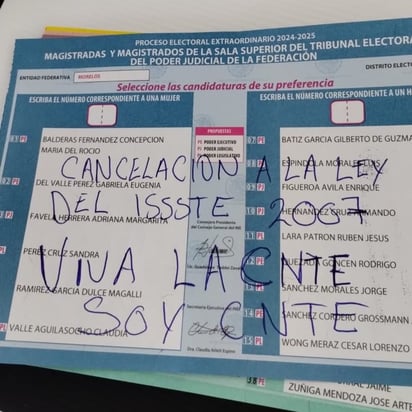 PROCESO ELECTORAL EXTRAORDINARIO 2024-2025
MAGISTRADAS Y MAGISTRADOS DE LA SALA SUPERIOR DEL TRIBUNAL ELECTORA
DEL PODER JUDICIAL DE LA FEDERACIÓN
ENTIDAD FEDERATIVA
MORELOS
DISTRITO ELECTO
Seleccione las candidaturas de su preferencia
ESCRIBA EL NÚMERO CORRESPONDIENTE A UNA MUJER
ESCRIBA EL NÚMERO CORRESPONDIENTE A UN H
BALDERAS FERNANDEZ CONCEPCION
MARIA DEL ROCIO
DEL VALLE PEREZ GABRIELA EUGENIA
FAVELA HERRERA ADRIANA MARGARITA
PEREZ CRUZ SANDRA
RAMIREZ GARCIA DULCE MAGALLI
VALLE AGUILASOCHO CLAUDIA
PROPUESTAS
PE PODER EJECUTIVO
PJ PODER JUDICIAL
PL PODER LEGISLATIVO
Consejera Presidenta
del Consejo General del INE
Lic. Guadalupe Taddei Zavala
Secretaria Ejecutiva del INE
Dra. Claudia Arlett Espino
BATIZ GARCIA GILBERTO DE GUZMA
ESPINDOLA MORALES LUIS
FIGUEROA AVILA ENRIQUE
HERNANDEZ CRUZ ARMANDO
LARA PATRON RUBEN JESUS
QUEZADA GONCEN RODRIGO
SANCHEZ MORALES JORGE
SANCHEZ CORDERO GROSSMANN
15 PE WONG MERAZ CESAR LORENZO
CANCELACIÓN A LA LEY
DEL ISSSTE 2007
VIVA LA CNTE
SOY CNTE
ZUÑIGA MENDOZA JOSE ARTE